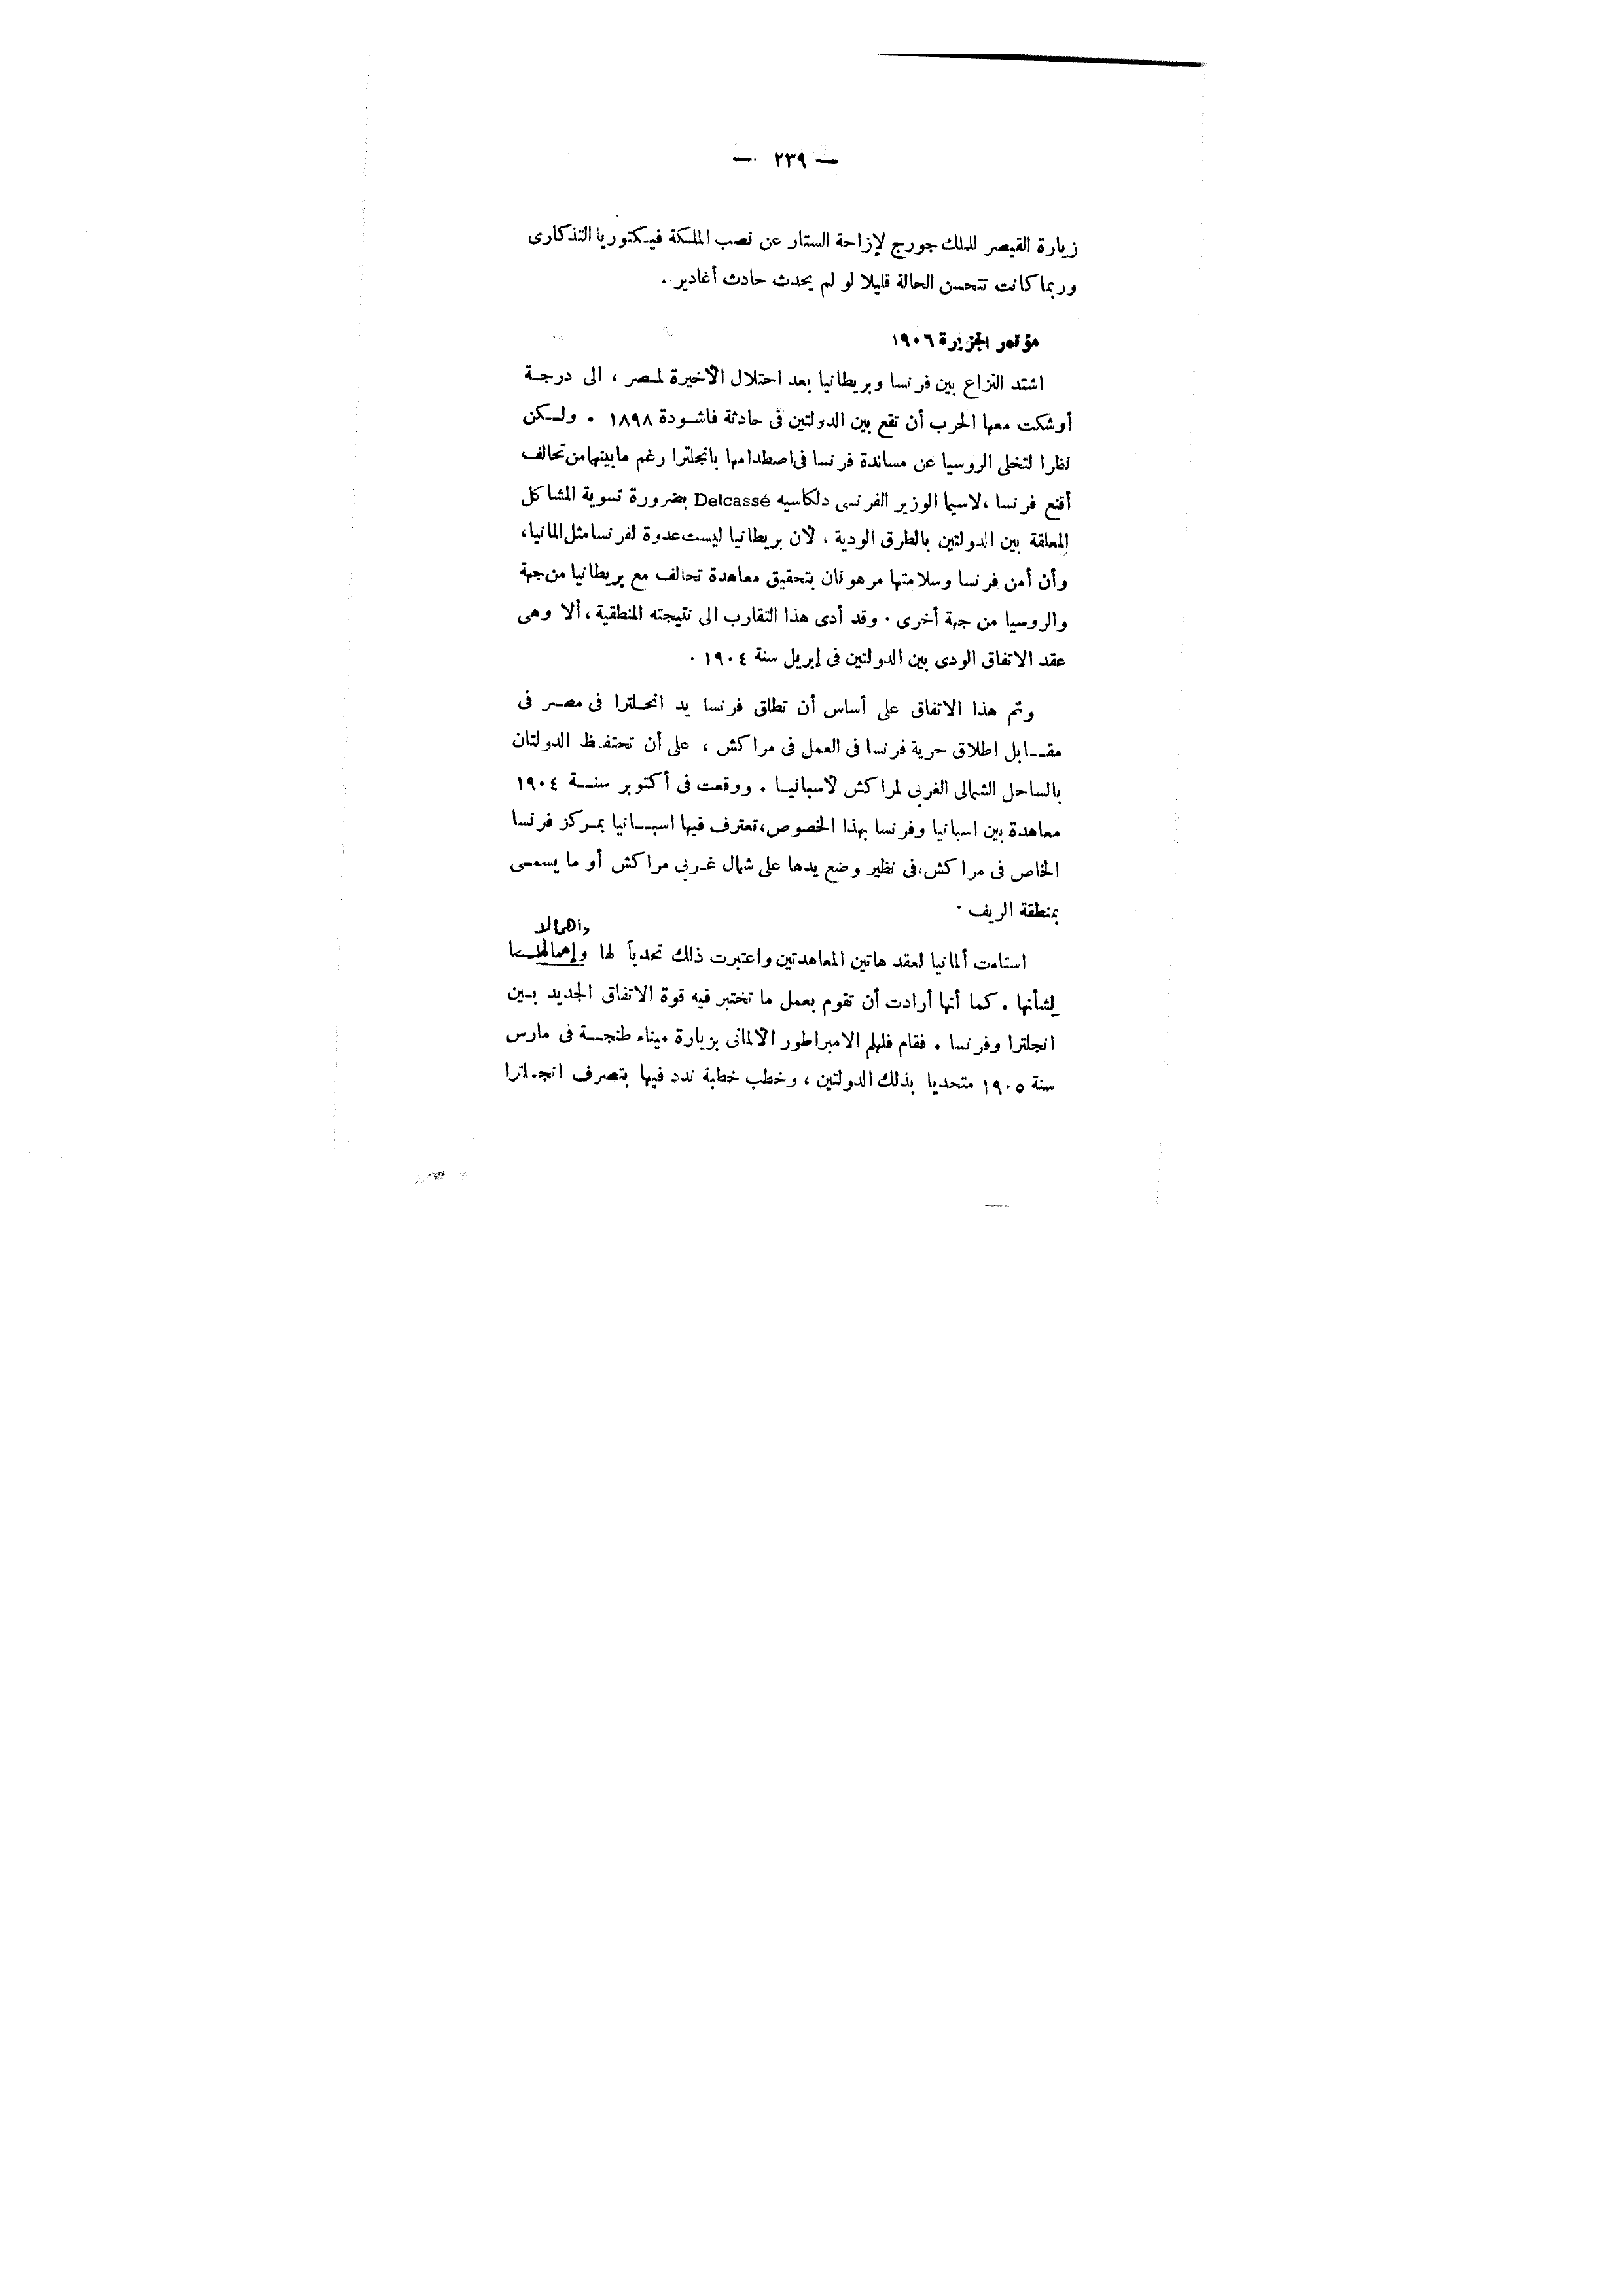 — ٢٣٩ —
زيارة القيصر للملك جورج لإزاحة الستار عن نصب الملكة فيكتوريا التذكارى
وربما كانت تتحسن الحالة قليلا لو لم يحدث حادث أغادير .
مؤتمر الجزيرة ١٩٠٦
اشتد النزاع بين فرنسا وبريطانيا بعد احتلال الأخيرة لمصر ، الى درجة
أوشكت معها الحرب أن تقع بين الدولتين فى حادثة فاشودة ١٨٩٨ . ولكن
نظرا لتخلى الروسيا عن مساندة فرنسا فى اصطدامها بانجلترا رغم مابينهما من تحالف
أقنع فرنسا ، لاسيما الوزير الفرنسى دلكاسيه Delcassé بضرورة تسوية المشاكل
المعلقة بين الدولتين بالطرق الودية ، لأن بريطانيا ليست عدوة لفرنسا مثل المانيا ،
وأن أمن فرنسا وسلامتها مرهونان بتحقيق معاهدة تحالف مع بريطانيا من جهة
والروسيا من جهة أخرى . وقد أدى هذا التقارب الى نتيجته المنطقية ، ألا وهى
عقد الاتفاق الودى بين الدولتين فى إبريل سنة ١٩٠٤ .
وتم هذا الاتفاق على أساس أن تطلق فرنسا يد انجلترا فى مصر فى
مقابل اطلاق حرية فرنسا فى العمل فى مراكش ، على أن تحتفظ الدولتان
بالساحل الشمالى الغربى لمراكش لأسبانيا . ووقعت فى أكتوبر سنة ١٩٠٤
معاهدة بين اسبانيا وفرنسا بهذا الخصوص ، تعترف فيها اسبانيا بمركز فرنسا
الخاص فى مراكش ، فى نظير وضع يدها على شمال غربى مراكش أو ما يسمى
بمنطقة الريف .
واهمالا
استاءت ألمانيا لعقد هاتين المعاهدتين واعتبرت ذلك تحدياً لها وإهمالها
لشأنها . كما أنها أرادت أن تقوم بعمل ما تختبر فيه قوة الاتفاق الجديد بين
انجلترا وفرنسا . فقام فلهلم الامبراطور الألمانى بزيارة ميناء طنجة فى مارس
سنة ١٩٠٥ متحديا بذلك الدولتين ، وخطب خطبة ندد فيها بتصرف انجلترا